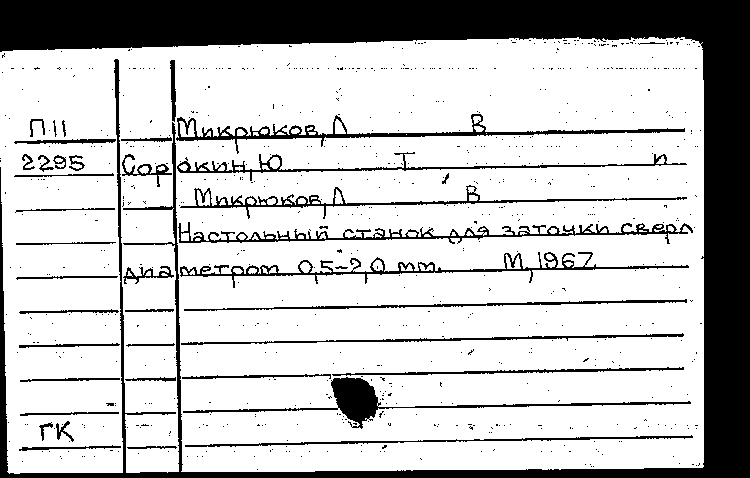 П11 Микрюков, Л В
2295 Сорокин, Ю Т и
Микрюков, Л В
Настольный станок для заточки сверл
диаметром 0,5-2,0 мм. М, 1967
ГК